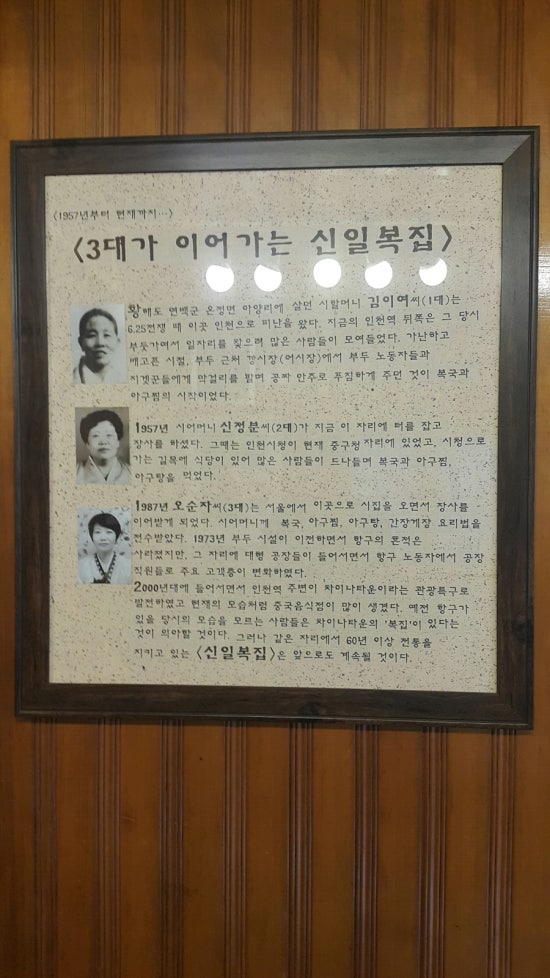 <1957년부터 현재까지…>
<3대가 이어가는 신일복집>
황해도 연백군 온정면 아양리에 살던 시할머니 김이여씨(1대)는
6.25전쟁 때 이곳 인천으로 피난을 왔다. 지금의 인천역 뒤쪽은 그 당시
부둣가여서 일자리를 찾으려 많은 사람들이 모여들었다. 가난하고
배고픈 시절, 부두 근처 깡시장(어시장)에서 부두 노동자들과
지겟꾼들에게 막걸리를 팔며 공짜 안주로 푸짐하게 주던 것이 복국과
아구찜의 시작이었다.
1957년 시어머니 신정분씨(2대)가 지금 이 자리에 터를 잡고
장사를 하셨다. 그때는 인천시청이 현재 중구청 자리에 있었고, 시청으로
가는 길목에 식당이 있어 많은 사람들이 드나들며 복국과 아구찜,
아구탕을 먹었다.
1987년 오순자씨(3대)는 서울에서 이곳으로 시집을 오면서 장사를
이어받게 되었다. 시어머니께 복국, 아구찜, 아구탕, 간장게장 요리법을
전수받았다. 1973년 부두 시설이 이전하면서 항구의 흔적은
사라졌지만, 그 자리에 대형 공장들이 들어서면서 항구 노동자에서 공장
직원들로 주요 고객층이 변화하였다.
2000년대에 들어서면서 인천역 주변이 차이나타운이라는 관광특구로
발전하였고 현재의 모습처럼 중국음식점이 많이 생겼다. 예전 항구가
있을 당시의 모습을 모르는 사람들은 차이나타운의 '복집'이 있다는
것이 의아할 것이다. 그러나 같은 자리에서 60년 이상 전통을
지키고 있는 <신일복집>은 앞으로도 계속될 것이다.